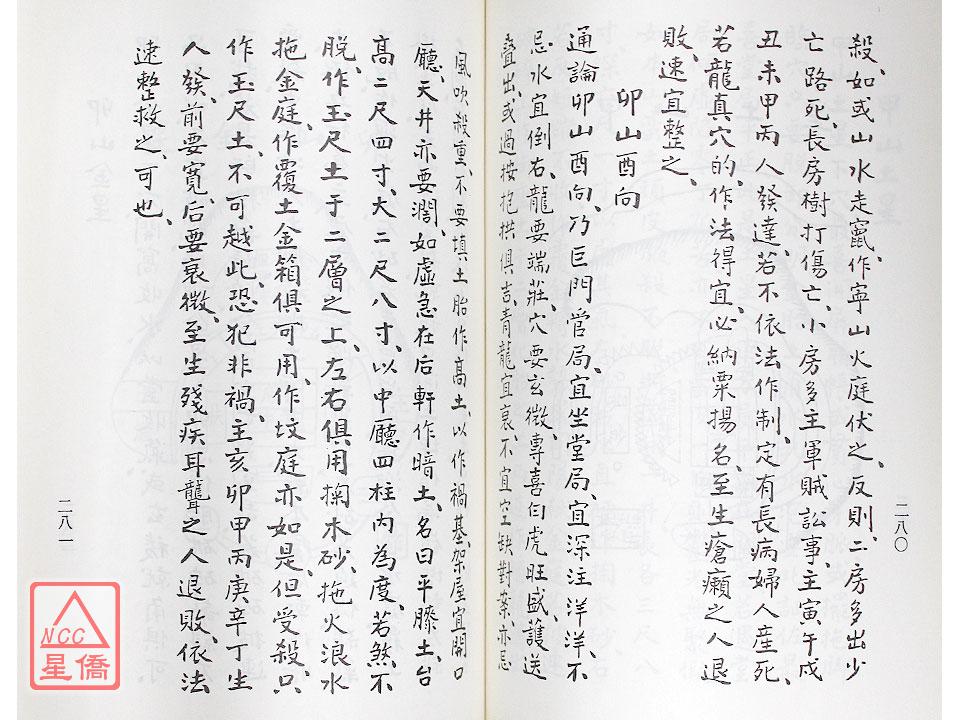 殺、如或山水走竄、作寧山火庭伏之、反則、二房多出少
亡、路死、長房樹打傷亡、小房多主軍賊訟事、主寅午戌
丑未甲丙人發達、若不依法作制、定有長病婦人產死、
若龍真穴的、作法得宜、必納粟揚名、至生瘡癩之人退
敗、速宜整之、
卯山酉向
通論卯山酉向、乃巨門管局、宜坐堂局、宜深注洋洋、不
忌水宜倒右、龍要端莊、穴要玄微、專喜白虎旺盛、護送
疊出、或過按抱拱俱吉、青龍宜衰、不宜空缺對案、亦忌
二八〇
風吹殺重、不要填土胎作高土、以作禍基、架屋宜開口
廳、天井亦要濶、如虛急在后軒作暗土、名曰平膝土、台
高二尺四寸、大二尺八寸、以中廳四柱內為度、若煞不
脫、作玉尺土于二層之上、左右俱用掬木砂、拖火浪水
拖金庭、作覆土金箱俱可用、作坟庭亦如是、但受殺、只
作玉尺土、不可越此、恐犯非禍、主亥卯甲丙庚辛丁生
人發、前要寬、后要衰微、至生殘疾耳聾之人退敗、依法
速整救之、可也、
二八一
NCC
星僑